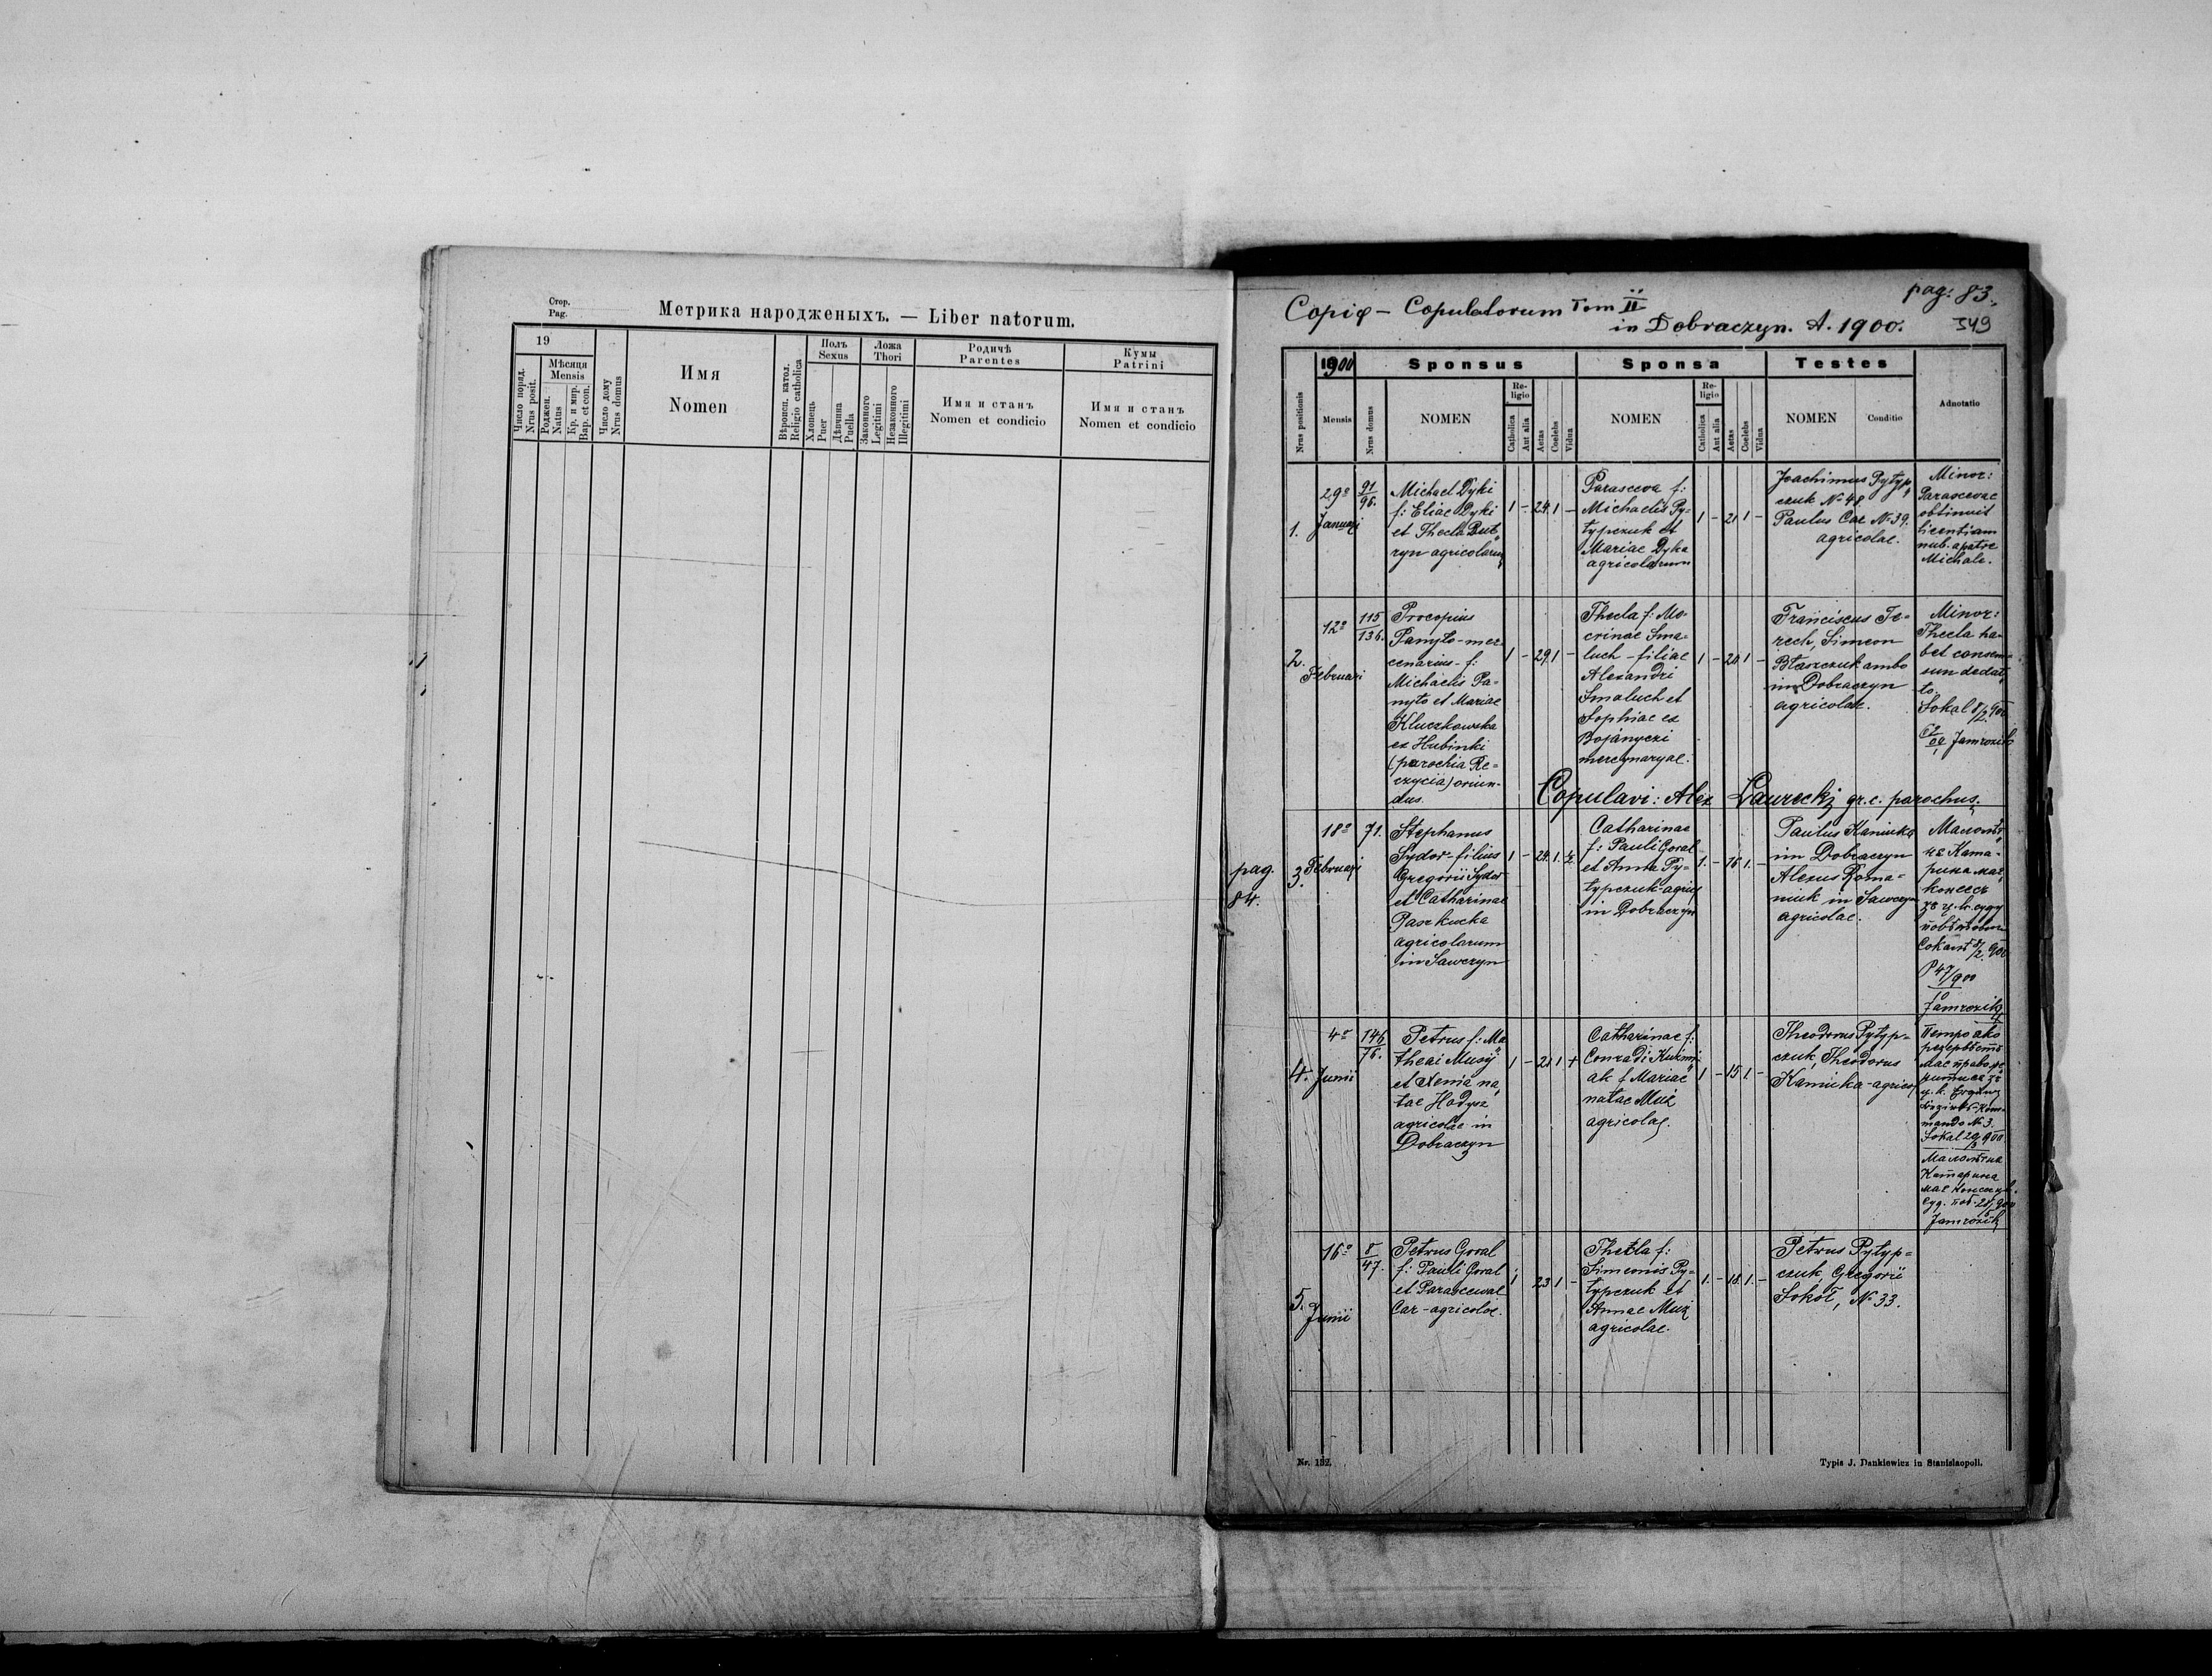 Стор.
Pag.
Метрика народженыхъ. — Liber natorum.
19
Число поряд.
Nrus posit.
Мѣсяця
Mensis
Роджен.
Natus
Кр. и мир.
Bap. et con.
Число дому
Nrus domus
Имя
Nomen
Вѣроисп. катол.
Religio catholica
Полъ
Sexus
Хлопець
Puer
Дѣвчина
Puella
Ложа
Thori
Законного
Legitimi
Незаконного
Illegitimi
Родичѣ
Parentes
Имя и станъ
Nomen et condicio
Кумы
Patrini
Имя и станъ
Nomen et condicio
pag: 83.
Copiφ - Copulatorum Tom II
in Dobraczyn. A. 1900.
349
Nrus positionis
1900
Mensis
Nrus domus
Sponsus
NOMEN
Re-
ligio
Catholica
Aut alia
Aetas
Coelebs
Vidua
Sponsa
NOMEN
Re-
ligio
Catholica
Aut alia
Aetas
Coelebs
Vidua
Testes
NOMEN
Conditio
Adnotatio
1.
29º
Januarj
91
96.
Michael Dyki
f: Eliae Dyki
et Thecla But-
ryn agricolarum
1 - 24 1 -
Parasceva f:
Michaelis Py-
typczuk et
Mariae Dyka
agricolarum
1 - 21 1 -
Joachimus Pytyp-
czuk Nº 48
Paulus Car Nº 39.
agricolae.
Minor:
Parascevae
obtinuit
licentiam
nub. a patre
Michale.
2.
12º
Februarj
115
136.
Procopius
Pamyto - mer-
cenarius - f:
Michaelis Pa-
myto et Mariae
Kluczkowska
ex Hubinki
(parochia Re-
czycia) oriun-
dus.
1 - 29 1 -
Thecla f: Ma-
crinae Sma-
luch - filiae
Alexandri
Smaluch et
Sophiae ex
Bojányczi
mercynaryae.
1 - 20 1 -
Franciscus Te-
rech, Simeon
Błaszczuk ambo
in Dobraczyn
agricolae.
Minor:
Thecla ha-
bet consen-
sum
Sokal 8/2 900
Jamrozik
Copulavi: Alex Laurecki gr. c. parochus.
pag.
84.
3.
18º
Februarj
71.
Stephanus
Sydor - filius
Gregorii Sydor
et Catharinae
Paszkucka
agricolarum
in Sawczyn
1 - 24. 1.
Catharinae
f: Pauli Goral
et Anna Py-
typczuk - agric
in Dobraczyn
1. - 16 1. -
Paulus Kaniuka
in Dobraczyn
Alexus Roma-
niuk in Sawczyn
agricolae.
Малолѣт-
Ката-
рина мае
консенсъ
ц. к. суду
повѣтового
Сокалѣ 8/2. 900
P 47/900
Jamrozik
4.
4º
Junii
146
76.
Petrus f: Ma-
theai Musij
et Xenia na-
tae Hadysz
agricolae in
Dobraczyn
1 - 21 1 +
Catharinae f:
Conradi Kuzmi-
ak f Mariae
natae Muź
agricolae.
1 - 15 1. -
Theodorus Pytyp-
czuk, Theodorus
Kaniuka - agricol
Петро яко
резервистъ
мае право
ц. к.
mando Nº 3.
Sokal 29/3 900
Малолѣтна
Катарина
мае консенсъ
Jamrozik
5.
16º
Junii
8
47.
Petrus Goral
f: Pauli Goral
et Parascevae
Car - agricolae.
1 23 1 -
Thecla f:
Simeonis Py-
typczuk et
Annae Muź
agricolae.
1. - 18. 1. -
Petrus Pytyp-
czuk, Gregorii
Sokoł, Nº 33.
Nr. 132.
Typis J. Dankiewicz in Stanislaopoli.